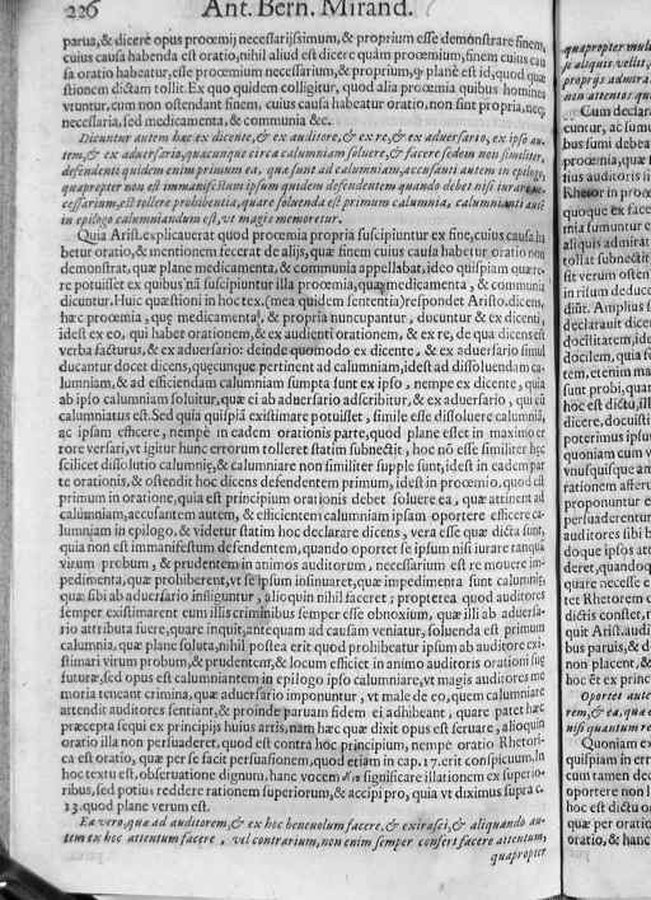 226 Ant. Bern. Mirand.
parua, & dicere opus proœmij necessarijssimum, & proprium esse demonstrare finem,
cuius causa habenda est oratio, nihil aliud est dicere quàm proœmium, finem cuius cau
sa oratio habeatur, esse proœmium necessarium, & proprium, ꝙ planè est id, quod quæ
stionem dictam tollit. Ex quo quidem colligitur, quod alia proœmia quibus homines
vtuntur, cum non ostendant finem, cuius causa habeatur oratio, non sint propria, neq;
necessaria, sed medicamenta, & communia &c.
Dicuntur autem hæc ex dicente, & ex auditore, & ex re, & ex aduersario, ex ipso au-
tem, & ex aduersario, quæcunque circa calumniam soluere, & facere sedem non similiter,
defendenti quidem enim primum ea, quæ sunt ad calumniam, accusanti autem in epilogo,
quapropter non est immanifestum ipsum quidem defendentem quando debet nisi iurare ne-
cessarium, est tollere prohibentia, quare soluenda est primum calumnia, calumnianti auté
in epilogo calumniandum est, vt magis memoretur.
Quia Arist. explicauerat quod proœmia propria suscipiuntur ex fine, cuius causa ha
betur oratio, & mentionem fecerat de alijs, quæ finem cuius causa habetur oratio non
demonstrat, quæ plane medicamenta, & communia appellabat, ideo quispiam quære-
re potuisset ex quibus nã suscipiuntur illa proœmia, quæ medicamenta, & communia
dicuntur. Huic quæstioni in hoc tex. (mea quidem sententia) respondet Aristo. dicens,
hæc proœmia, quę medicamenta, & propria nuncupantur, ducuntur & ex dicenti,
idest ex eo, qui habet orationem, & ex audienti orationem, & ex re, de qua dicens est
verba facturus, & ex aduersario: deinde quomodo ex dicente, & ex aduersario simul
ducantur docet dicens, quęcunque pertinent ad calumniam, idest ad dissoluendam ca-
lumniam, & ad efficiendam calumniam sumpta sunt ex ipso, nempe ex dicente, quia
ab ipso calumniam soluitur, quæ ei ab aduersario adscribitur, & ex aduersario, qui eū
calumniatus est. Sed quia quispiã existimare potuisset, simile esse dissoluere calumniã,
ac ipsam efficere, nempè in eadem orationis parte, quod plane esset in maximo er
rore versari, vt igitur hunc errorum tolleret statim subnectit, hoc nō esse similiter hęc
scilicet dissolutio calumnię, & calumniare non similiter supple sunt, idest in eadem par
te orationis, & ostendit hoc dicens defendentem primum, idest in proœmio, quod est
primum in oratione, quia est principium orationis debet soluere ea, quæ attinent ad
calumniam, accusantem autem, & efficientem calumniam ipsam oportere efficere ca-
lumniam in epilogo. & videtur statim hoc declarare dicens, vera esse quæ dicta sunt,
quia non est immanifestum defendentem, quando oportet se ipsum nisi iurare tanquã
virum probum, & prudentem in animos auditorum, necessarium est re mouere im-
pedimenta, quæ prohiberent, vt se ipsum insinuaret, quæ impedimenta sunt calumnię,
quæ sibi ab aduersario infliguntur, alioquin nihil faceret; propterea quod auditores
semper existimarent eum illis criminibus semper esse obnoxium, quæ illi ab aduersa-
rio attributa fuere, quare inquit, antequam ad causam veniatur, soluenda est primum
calumnia, quæ plane soluta, nihil postea erit quod prohibeatur ipsum ab auditore exi-
stimari virum probum, & prudentem, & locum efficiet in animo auditoris orationi suę
futuræ, sed opus est calumniantem in epilogo ipso calumniare, vt magis auditores me
moria teneant crimina, quæ aduersario imponuntur, vt male de eo, quem calumniare
attendit auditores sentiant, & proinde paruam fidem ei adhibeant, quare patet hæc
præcepta sequi ex principijs huius artis, nam hæc quæ dixit opus est seruare, alioquin
oratio illa non persuaderet, quod est contra hoc principium, nempè oratio Rhetori-
ca est oratio, quæ per se facit persuasionem, quod etiam in cap. 17. erit conspicuum. In
hoc textu est, obseruatione dignum, hanc vocem significare illationem ex superio-
ribus, sed potius reddere rationem superiorum, & accipi pro, quia vt diximus supra c.
13. quod plane verum est.
Ea vero, quæ ad auditorem, & ex hoc beneuolum facere, & exirasci, & aliquando au-
tem ex hoc attentum facere, vel contrarium, non enim semper confert facere attentum,
quapropter
quapropter mul
se aliquis vellit,
proprijs admira
non attentos qu
Cum declara
cuntur, ac sumu
bus sumi debea
proœmia, quæ
tius auditoris
Rhetor in proœ
quoque ex face
mia sumuntur e
aliquis admirat
tollat subnectit
sit verum osten
in risum deduce
diūt. Amplius
declarauit dice
docilitatem, ide
docilem, quia s
tem, etenim ma
sunt probi, quar
hoc est dictū, ill
dicere, docuisti
poterimus ipsu
quoniam cum v
vnusquisque am
rationem affert
proponuntur e
persuaderentur
auditores sibi b
doque ipsos att
deret, quandoq
quare necesse e
tet Rhetorem c
dictis constet, r
quit Arist. audi
bus paruis, & d
non placent, &
hoc ēt ex princ
Oportet aute
rem, & ea, quæ
nisi quantum re
Quoniam ex
quispiam in err
cum tamen dec
oportere non l
hoc est dictu or
quæ per oratio
oratio, & hanc